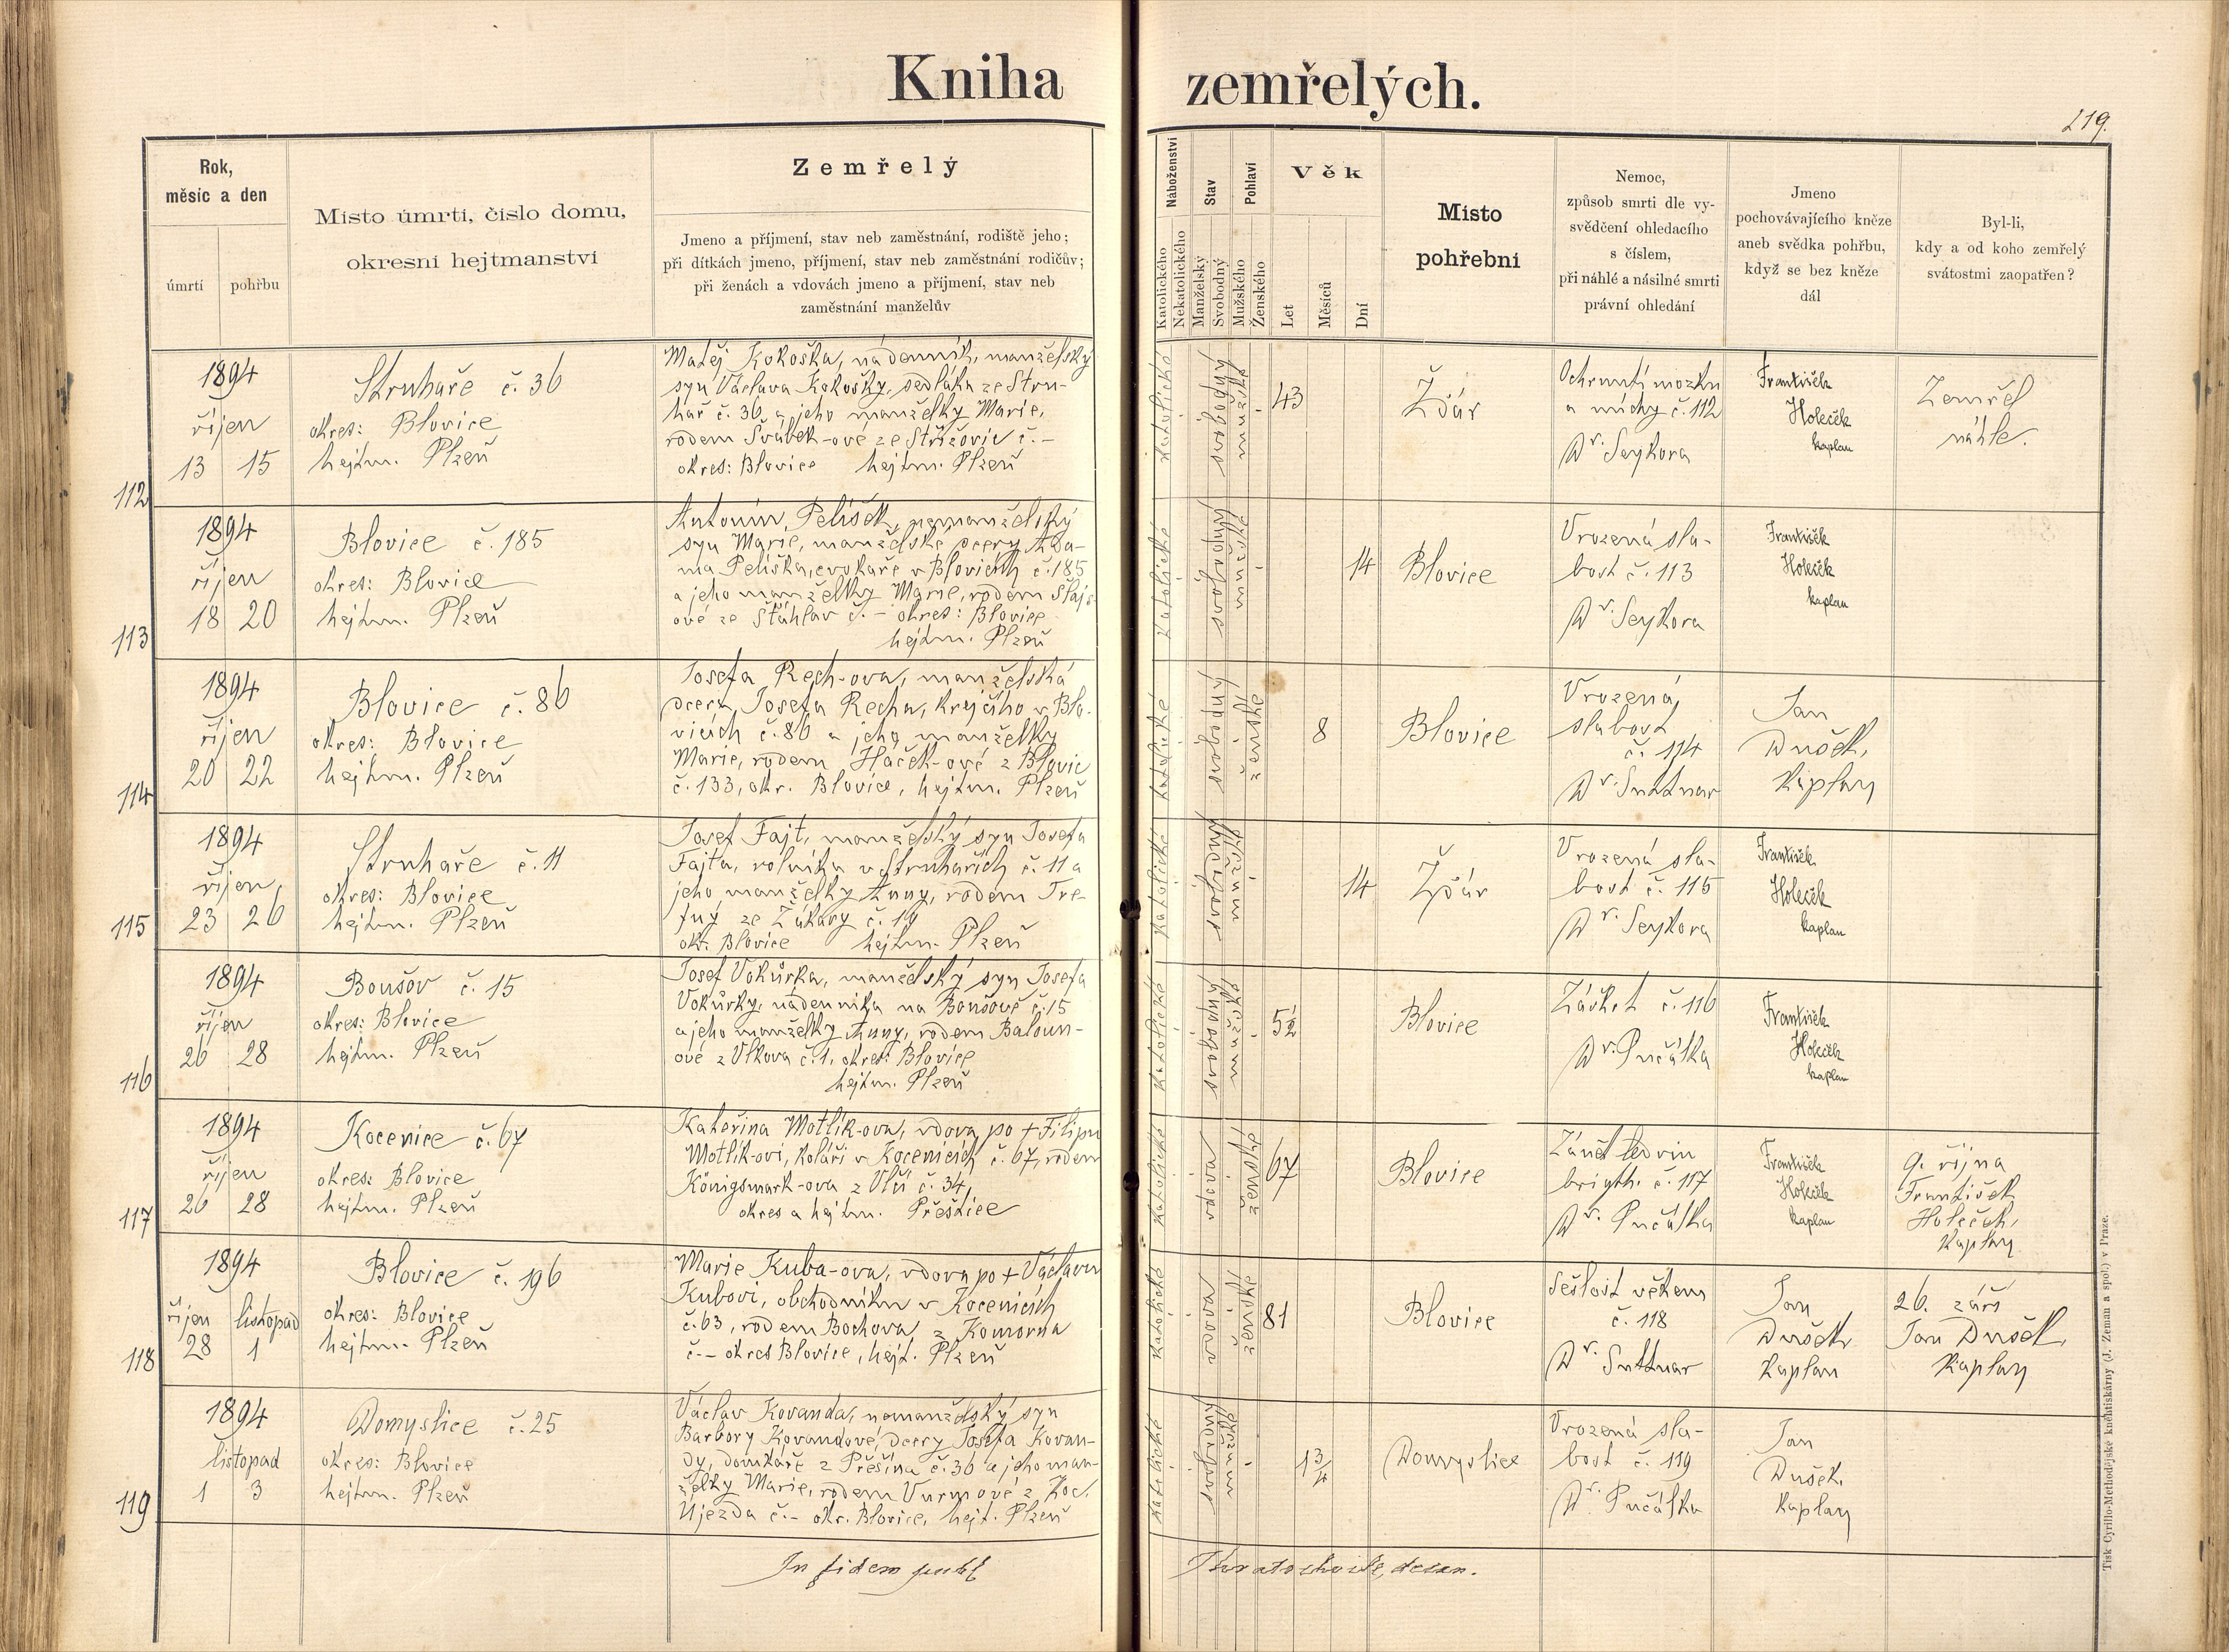 Kniha zemřelých.
219.
Rok,
měsíc a den
úmrtí
pohřbu
Místo úmrtí, číslo domu,
okresní hejtmanství
Zemřelý
Jmeno a příjmení, stav neb zaměstnání, rodiště jeho;
při dítkách jmeno, příjmení, stav neb zaměstnání rodičův;
při ženách a vdovách jmeno a příjmení, stav neb
zaměstnání manželův
Náboženství
Katolického
Nekatolického
Stav
Manželský
Svobodný
Pohlaví
Mužského
Ženského
Věk
Let
Měsíců
Dní
Místo
pohřební
Nemoc,
způsob smrti dle vy-
svědčení ohledacího
s číslem,
při náhlé a násilné smrti
právní ohledání
Jmeno
pochovávajícího kněze
aneb svědka pohřbu,
když se bez kněze
dál
Byl-li,
kdy a od koho zemřelý
svátostmi zaopatřen?
112
1894
říjen
13 15
Struhaře č. 36
okres: Blovice
hejtm. Plzeň
Matěj Kokoška, nádenník, manželský
syn Václava Kokošky, sedláka ze Stru-
hař č. 36 a jeho manželky Marie,
rodem Švábek-ové ze Střížovic č. -
okres: Blovice hejtm. Plzeň
katolické
svobodný
mužské
43
Ždár
Ochrnutí mozku
a míchy č. 112
Dr. Seykora
František
Holeček
kaplan
Zemřel
náhle.
113
1894
říjen
18 20
Blovice č. 185
okres: Blovice
hejtm. Plzeň
Antonín Pelíšek, nemanželský
syn Marie, manželské dcery Ada-
ma Pelíška, cvokaře v Blovicích č. 185
a jeho manželky Marie, rodem Šlajs-
ové ze Šťáhlav č. - okres: Blovice
hejtm. Plzeň
katolické
svobodný
mužské
14
Blovice
Vrozená sla-
bost č. 113
Dr. Seykora
František
Holeček
kaplan
114
1894
říjen
20 22
Blovice č. 86
okres: Blovice
hejtm. Plzeň
Josefa Rech-ova, manželská
dcera Josefa Recha, krejčího v Blo-
vicích č. 86 a jeho manželky
Marie, rodem Háček-ové z Blovic
č. 133, okr. Blovice, hejtm. Plzeň
katolické
svobodný
ženské
8
Blovice
Vrozená
slabost
č. 114
Dr. Suttnar
Jan
Dušek,
kaplan
115
1894
říjen
23 26
Struhaře č. 11
okres: Blovice
hejtm. Plzeň
Josef Fajt, manželský syn Josefa
Fajta, rolníka v Struhařích č. 11 a
jeho manželky Anny, rodem Tre-
fný ze Žákavy č. 19
okr. Blovice hejtm. Plzeň
katolické
svobodný
mužské
14
Ždár
Vrozená sla-
bost č. 115
Dr. Seykora
František
Holeček
kaplan
116
1894
říjen
26 28
Boušov č. 15
okres: Blovice
hejtm. Plzeň
Josef Vokůrka, manželský syn Josefa
Vokůrky, nádenníka na Boušově č. 15
a jeho manželky Anny, rodem Baloun-
ové z Vlkova č. 1, okres: Blovice
hejtm. Plzeň
katolické
svobodný
mužské
5½
Blovice
Záškrt č. 116
Dr. Pučálka
František
Holeček
kaplan
117
1894
říjen
26 28
Kocenice č. 67
okres: Blovice
hejtm. Plzeň
Kateřina Motlík-ova, vdova po + Filipu
Motlík-ovi, koláři v Kocenicích č. 67, rodem
Königsmark-ova z Vlčí č. 34,
okres a hejtm. Přeštice
katolické
vdova
ženské
67
Blovice
Zánět ledvin
brigth. č. 117
Dr. Pučálka
František
Holeček
kaplan
9. října
František
Holeček,
kaplan
118
1894
říjen listopad
28 1
Blovice č. 196
okres: Blovice
hejtm. Plzeň
Marie Kuba-ova, vdova po + Václavu
Kubovi, obchodníku v Kocenicích
č. 63, rodem Bochova z Komorna
č - okres Blovice, hejt. Plzeň
katolické
vdova
ženské
81
Blovice
Sešlost věkem
č. 118
Dr. Suttnar
Jan
Dušek
kaplan
26. září
Jan Dušek,
kaplan
119
1894
listopad
1 3
Domyslice č. 25
okres: Blovice
hejtm. Plzeň
Václav Kovanda, nemanželský syn
Barbory Kovandové, dcery Josefa Kovan-
dy, domkáře z Přešína č. 36 a jeho man-
želky Marie, rodem Vurmové z Koc.
Újezda č. - okr. Blovice, hejt. Plzeň
katolické
svobodný
mužské
1¾
Domyslice
Vrozená sla-
bost č. 119
Dr. Pučálka
Jan
Dušek
kaplan
In fidem publ
děkan.
Tisk Cyrillo-Methodějské knihtiskárny (J. Zeman a spol.) v Praze.